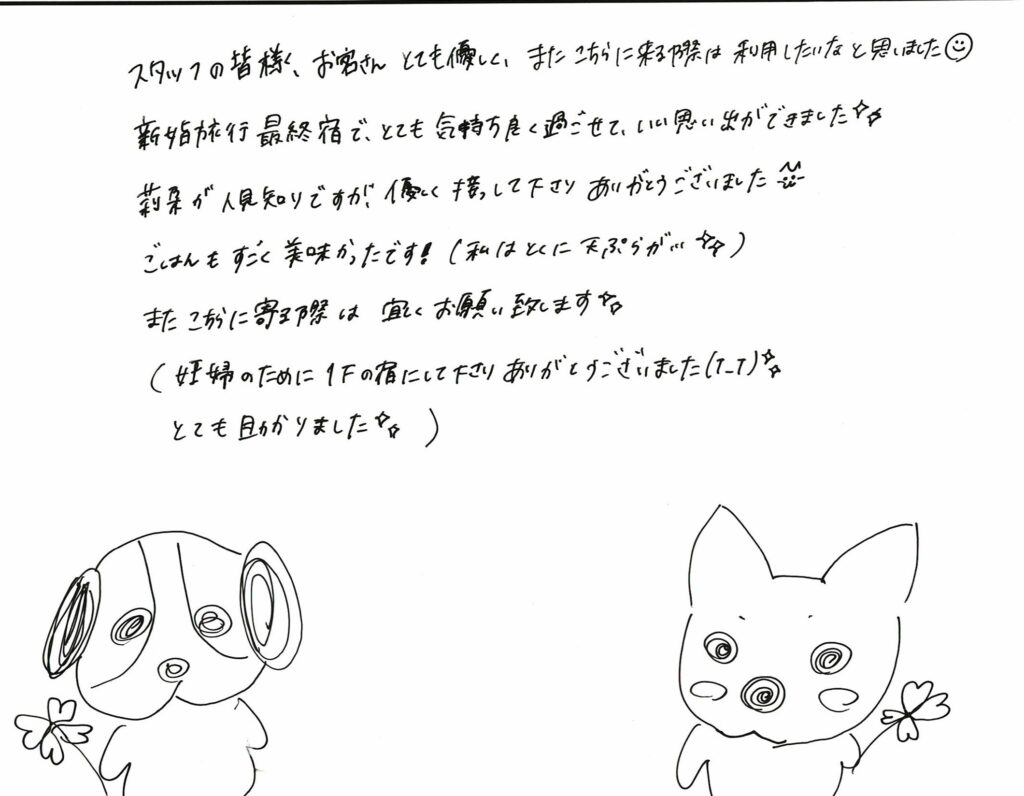 スタッフの皆様、お客さん とても優しく、また こちらに来る際は 利用したいなと思いました
新婚旅行 最終宿で、とても 気持ち良く過ごせて、いい思い出ができました
莉朶が人見知りですが、優しく 接して下さり ありがとうございました
ごはんも すごく 美味かったです!(私は とくに 天ぷらが… )
また こちらに寄る際は 宜しく お願い致します
(妊婦のために 1Fの宿にして下さり ありがとうございました(T_T)
とても 助かりました )